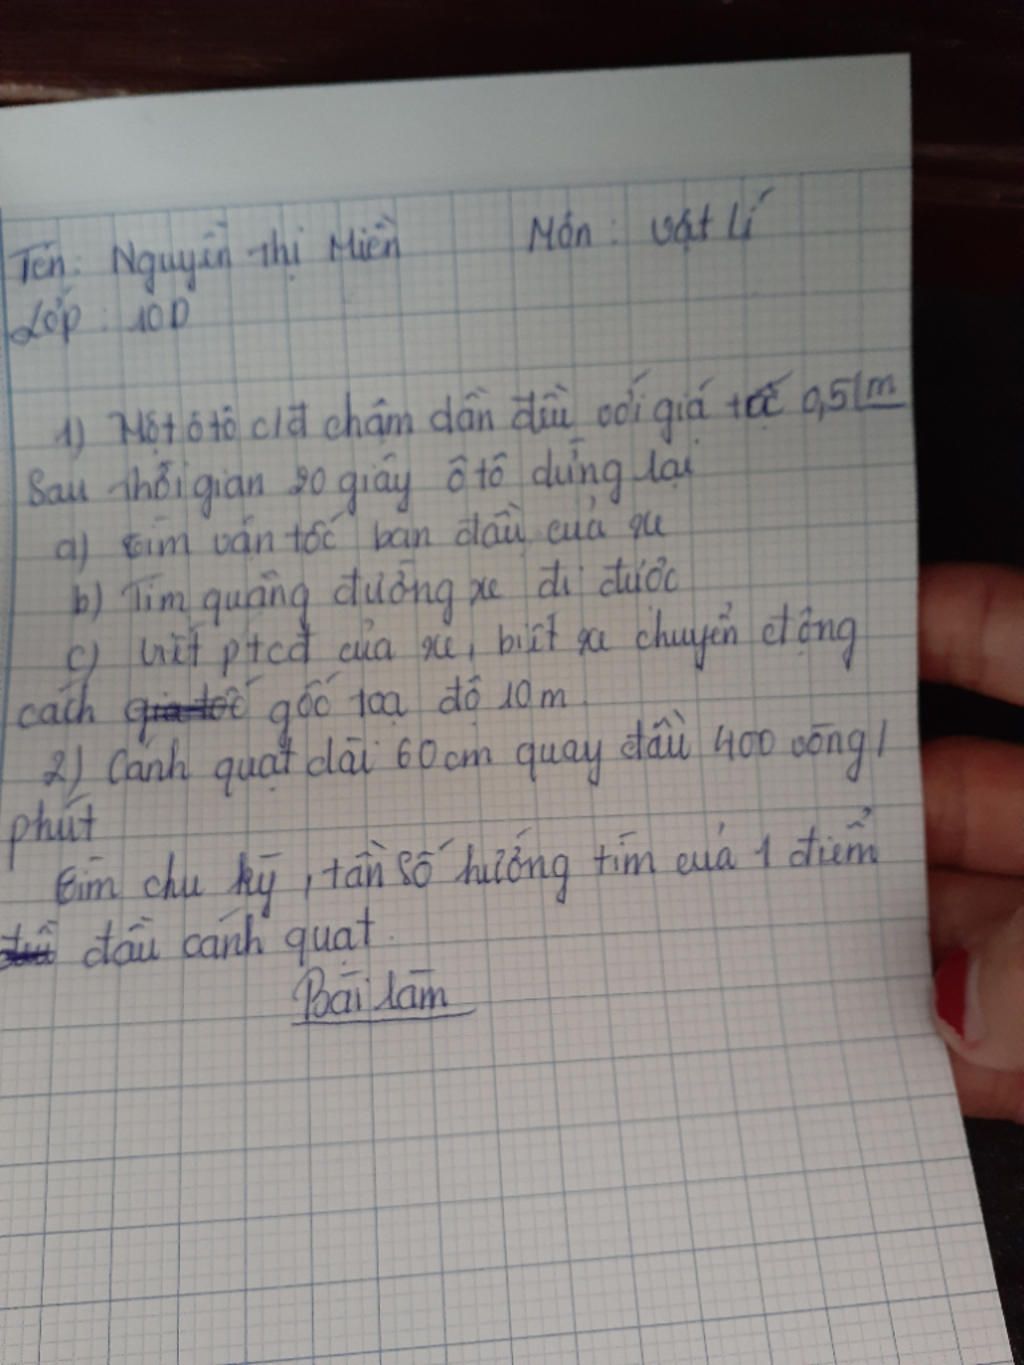 Tên: Nguyễn thị Miền Môn: Vật lí
Lớp: 10D
1) Một ô tô c/đ chậm dần đều với giá tốc 0,5
Sau thời gian 20 giây ô tô dừng lại
a) tìm vận tốc ban đầu của xe
b) Tìm quãng đường xe đi được
c) Viết ptcđ của xe, biết xe chuyển động
cách gốc toạ độ 10m
2) Cánh quạt dài 60cm quay đầu 400 vòng/
phút
tìm chu kỳ, tần số hướng tìm của 1 điểm
đầu cánh quạt.
Bài làm